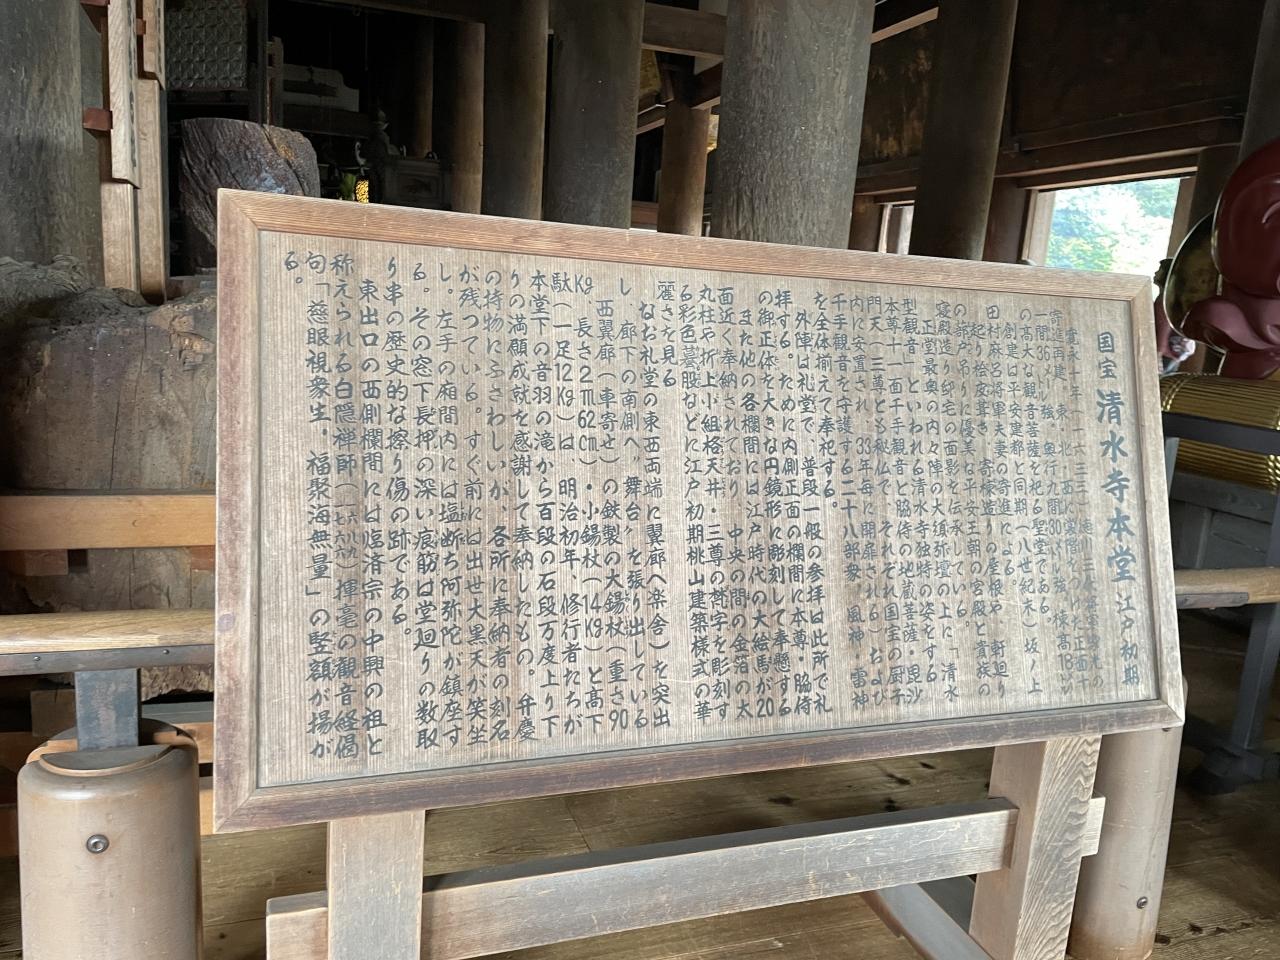 国宝 清水寺本堂 江戸初期
寛永十年(一六三三)徳川三代将軍家光の
寄進再建、東、北、西に裳階をつけた正面十
一間36メートル強、奥行九間30メートル強、棟高18メートル
の高大な観音菩薩を祀る聖堂である。
創建は平安建都と同期(八世紀末)坂ノ上
田村麻呂将軍夫妻の寄進による。
起り桧皮葺き、寄棟造りの屋根や、軒廻り
の蔀戸吊りに優美な平安王朝の宮殿と貴族の
寝殿造り邸宅の面影を伝承している。
正堂最奥の内々陣の大須弥壇の上に「清水
型観音」といわれる清水寺独特の姿をする
本尊十一面千手観音と脇侍の地蔵菩薩・毘沙
門天(三尊とも秘仏で、それぞれ国宝の厨子
内に安置され、33年毎に開扉される)および
千手観音を守護する二十八部衆、風神、雷神
を全体揃えて奉祀する。
外陣は礼堂で、普段一般の参拝は此所で礼
拝する。ために内側正面の欄間に本尊・脇侍
の御正体を大きな円鏡形に彫刻して奉懸する
また他の各欄間には江戸時代の大絵馬が20
面近く奉納されており、中央の間の金箔の太
丸柱や折上小組格天井・三尊の梵字を彫刻す
る彩色蟇股などに江戸初期桃山建築様式の華
麗さを見る
なお礼堂の東西両端に翼廊へ楽舎)を突出
し、廊下の南側へ、舞台〟を張り出している
西翼廊(車寄せ)の鉄製の大錫杖(重さ90
Kg、長さ2m62cm)・小錫杖(14Kg)と高下
駄(一足12Kg)は、明治初年、修行者たちが
本堂下の音羽の滝から百段の石段万度上り下
りの満願成就を感謝して奉納したもの。弁慶
の持物にふさわしいが、各所に奉納者の刻名
が残っている。すぐ前には出世大黒天が笑坐
し。左手の廂間内には塩断ち阿弥陀が鎮座す
る。その窓下長押の深い痕筋は堂廻りの数取
り串の歴史的な擦り傷の跡である。
東出口の西側欄間には臨済宗の中興の祖と
称えられる白隠禅師(一六八九一七六六)揮毫の観音経偈
句「慈眼視衆生・福聚海無量」の竪額が揚が
る。